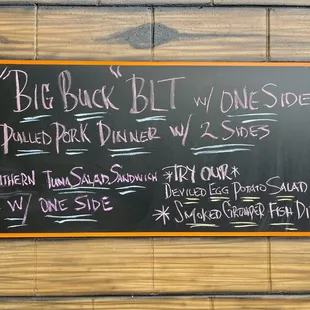 "Big Buck" BLT w/ ONE Side
Pulled Pork Dinner w/ 2 Sides
Tuna Salad Sandwich
w/ one side
*Try our*
Deviled Egg Potato Salad
*Smoked Grouper Fish